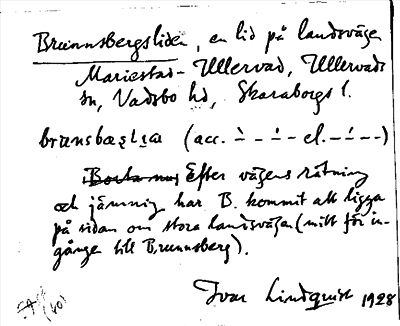 Brunnsbergsliden, en lid på landsvägen
Mariestad-Ullervad, Ullervads
sn, Vadsbo hd, Skaraborgs l.
(acc. ˋ - ˊ - el. - ˊ - -)
Borta nu; Efter vägens rätning
och jämning har B. kommit att ligga
på sidan om stora landsvägen (mitt för in-
gången till Brunnsberg).
Ivar Lindquist 1928